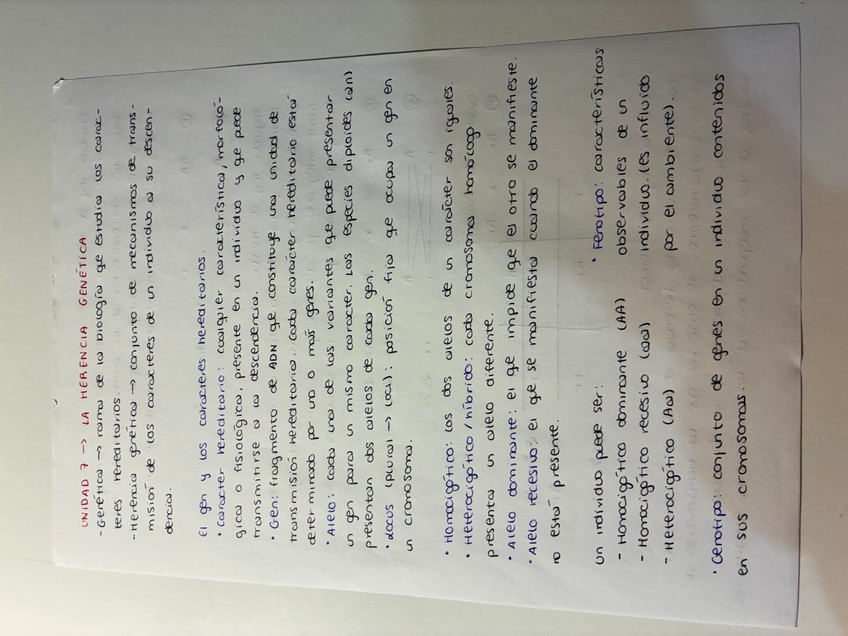 UNIDAD 7 → LA HERENCIA GENÉTICA
- Genética → rama de la biología qe estudia los carac-
teres hereditarios.
- Herencia genética → conjunto de mecanismos de trans-
misión de los caracteres de un individuo a su descen-
dencia.
El gen y los caracteres hereditarios.
• Carácter hereditario: cualquier característica, morfoló-
gica o fisiológica, presente en un individuo y qe puede
transmitirse a la descendencia.
• Gen: fragmento de ADN qe constituye una unidad de
transmisión hereditaria. Cada carácter hereditario está
determinado por uno o más genes.
• Alelo: cada una de las variantes qe puede presentar
un gen para un mismo carácter. Las especies diploides (2n)
presentan dos alelos de cada gen.
• Locus (plural → loci): posición fija qe ocupa un gen en
un cromosoma.
• Homocigótico: los dos alelos de un carácter son iguales.
• Heterocigótico / híbrido: cada cromosoma homólogo
presenta un alelo diferente.
• Alelo dominante: el qe impide qe el otro se manifieste.
• Alelo recesivo: el qe se manifiesta cuando el dominante
no está presente.
Un individuo puede ser:
- Homocigótico dominante (AA)
- Homocigótico recesivo (aa)
- Heterocigótico (Aa)
• Fenotipo: características
observables de un
individuo. (es influido
por el ambiente).
• Genotipo: conjunto de genes en un individuo contenidos
en sus cromosomas.